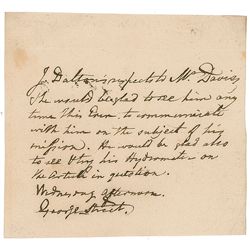 J. Dalton's respects to Mr. Davies
he would be glad to see him any
time this Even. to communicate
with him on the subject of his
mission. He would be glad also
to see try his Hydrometer on
the article in question.
Wednesday afternoon.
George Street.